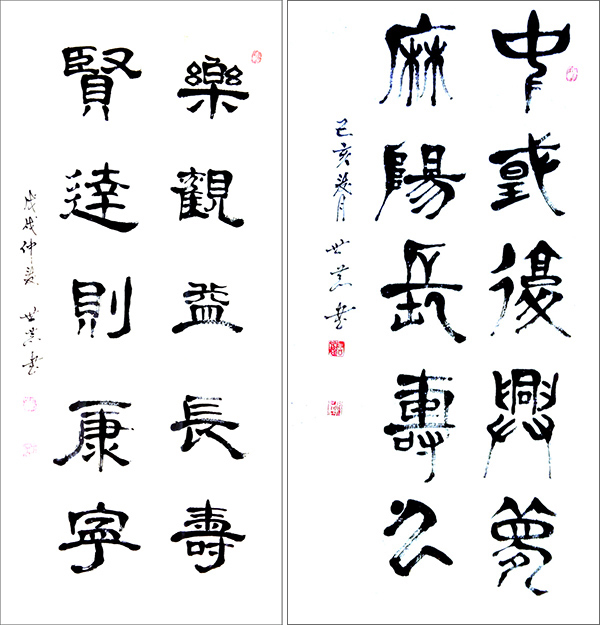 樂觀益長壽
賢達則康寧
戊戌仲夏 世書
中或復興夢
麻陽長壽久
己亥月 世書